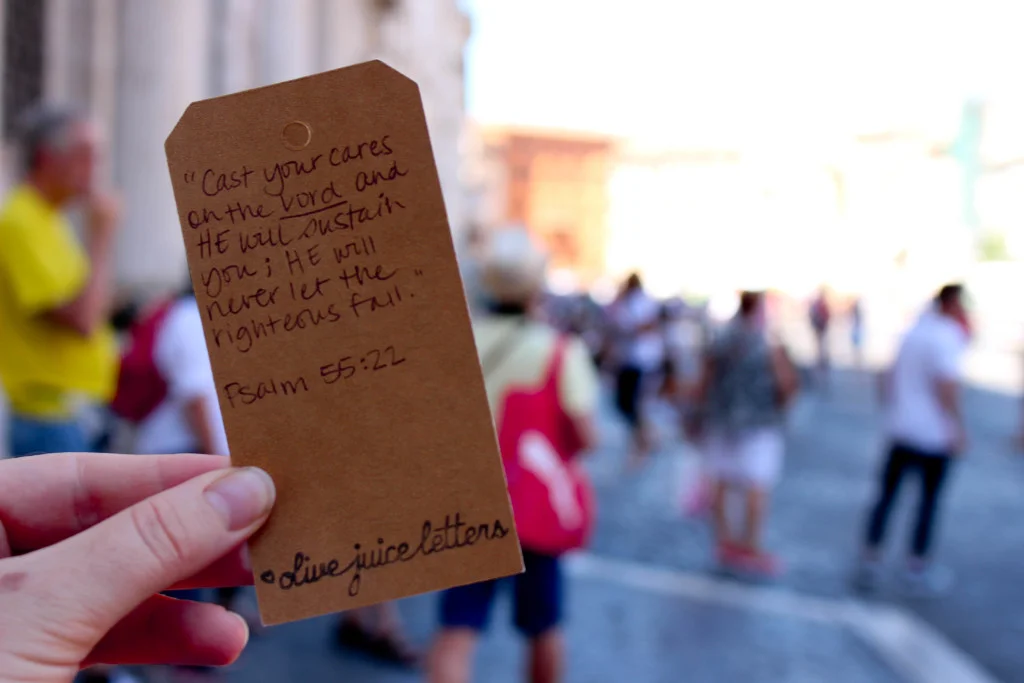 "Cast your cares
on the Lord and
HE will sustain
you; HE will
never let the
righteous fall."
Psalm 55:22
olive juice letters